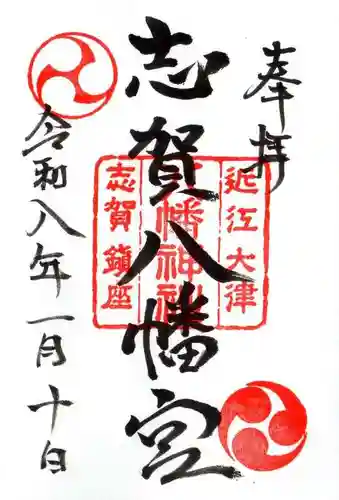 奉拝
志賀八幡宮
近江大津
八幡神社
志賀鎮座
令和八年一月十日